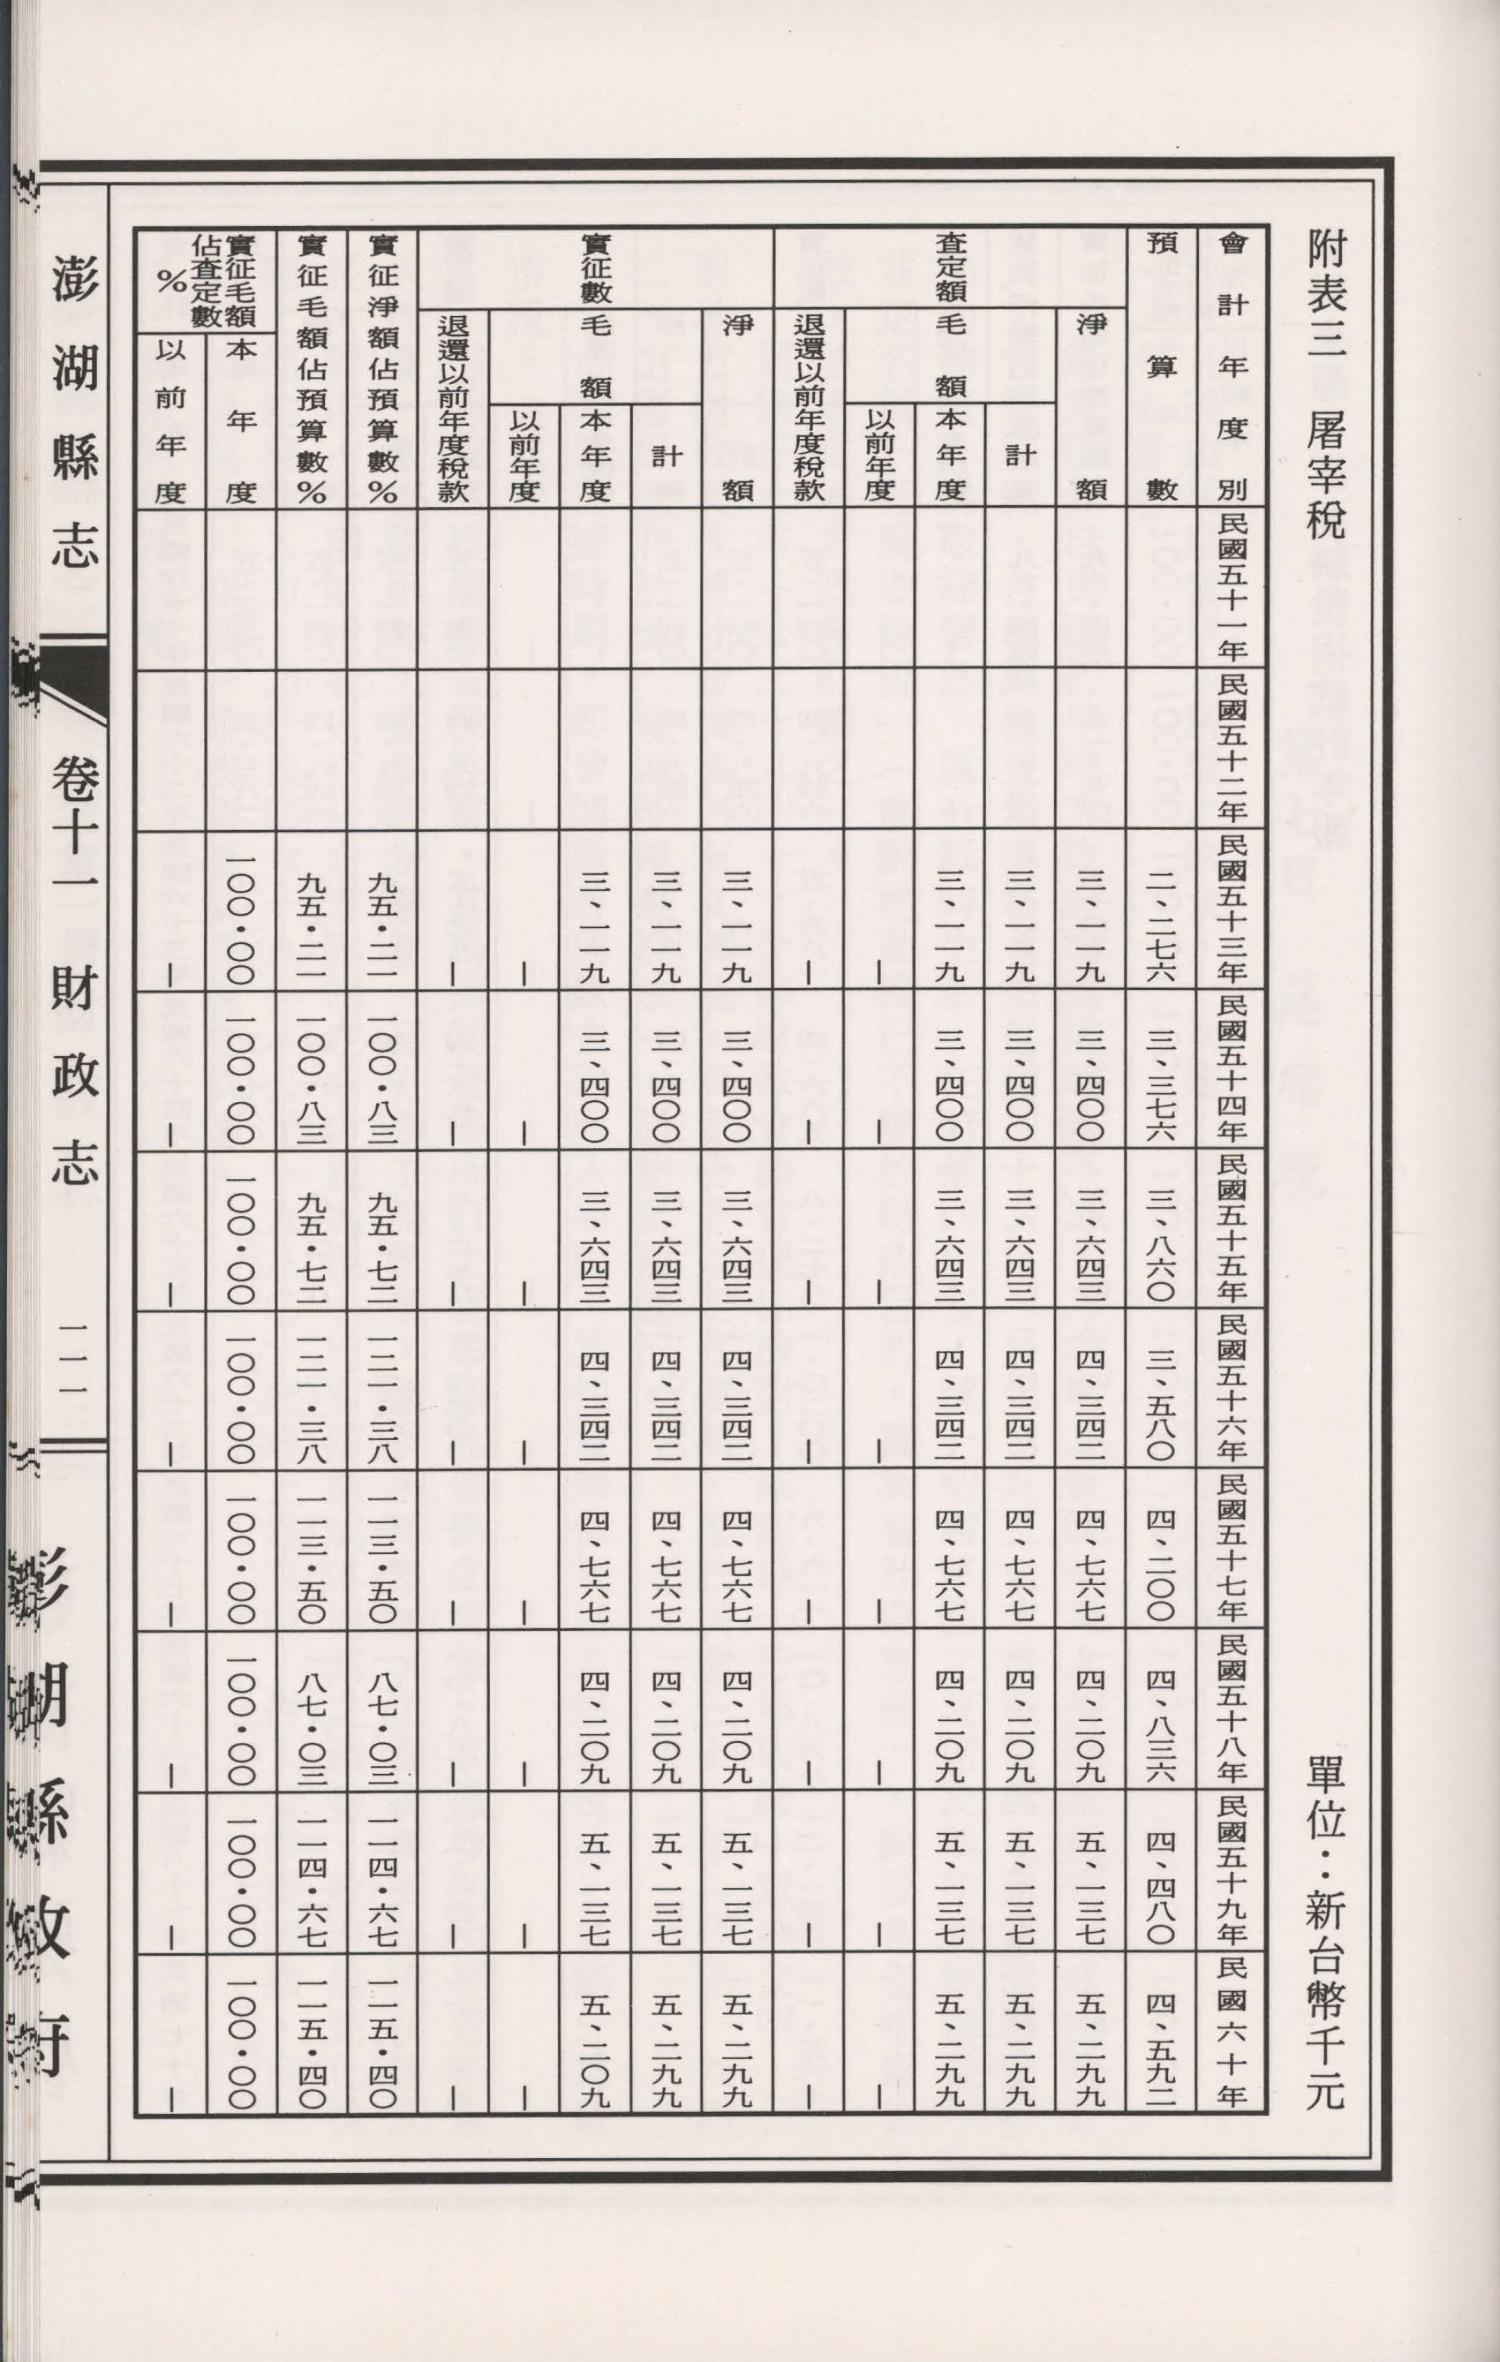 附表三　屠宰稅
單位：新台幣千元
會計年度別　民國五十一年　民國五十二年　民國五十三年　民國五十四年　民國五十五年　民國五十六年　民國五十七年　民國五十八年　民國五十九年　民國六十年
預算數　二、二七六　三、三七六　三、八六〇　三、五八〇　四、二〇〇　四、八三六　四、四八〇　四、五九二
查定額
淨額　三、一一九　三、四〇〇　三、六四三　四、三四二　四、七六七　四、二〇九　五、一三七　五、二九九
毛額
計　三、一一九　三、四〇〇　三、六四三　四、三四二　四、七六七　四、二〇九　五、一三七　五、二九九
本年度　三、一一九　三、四〇〇　三、六四三　四、三四二　四、七六七　四、二〇九　五、一三七　五、二九九
以前年度　—　—　—　—　—　—　—　—
退還以前年度稅款　—　—　—　—　—　—　—　—
實征數
淨額　三、一一九　三、四〇〇　三、六四三　四、三四二　四、七六七　四、二〇九　五、一三七　五、二九九
毛額
計　三、一一九　三、四〇〇　三、六四三　四、三四二　四、七六七　四、二〇九　五、一三七　五、二九九
本年度　三、一一九　三、四〇〇　三、六四三　四、三四二　四、七六七　四、二〇九　五、一三七　五、二〇九
以前年度　—　—　—　—　—　—　—　—
退還以前年度稅款　—　—　—　—　—　—　—　—
實征淨額佔預算數％　九五・二一　一〇〇・八三　九五・七二　一二一・三八　一一三・五〇　八七・〇三　一一四・六七　一一五・四〇
實征毛額佔預算數％　九五・二一　一〇〇・八三　九五・七二　一二一・三八　一一三・五〇　八七・〇三　一一四・六七　一一五・四〇
實征毛額
佔查定數
％
本年度　一〇〇・〇〇　一〇〇・〇〇　一〇〇・〇〇　一〇〇・〇〇　一〇〇・〇〇　一〇〇・〇〇　一〇〇・〇〇　一〇〇・〇〇
以前年度　—　—　—　—　—　—　—　—
澎湖縣志　卷十一財政志　一一一　澎湖縣政府